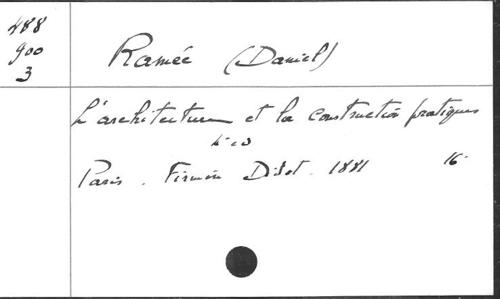 488
900
3
Ramée (Daniel)
L'architecture et la construction pratiques
4e éd
Paris. Firmin Didot. 1881 16-